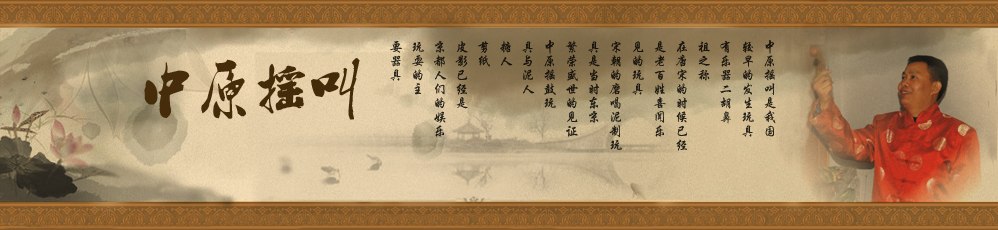 中原摇叫
中原摇叫是我国
较早的发生玩具
有乐器二胡鼻
祖之称
在唐宋的时候已经
是老百姓喜闻乐
见的玩具
宋朝的磨喝泥制玩
具是当时东京
繁荣盛世的见证
中原摇鼓玩
具与泥人
糖人
剪纸
皮影已经是
京都人们的娱乐
玩耍的主
要器具